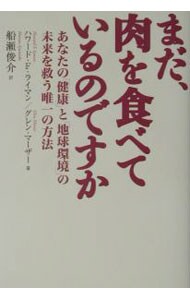 まだ、
肉を食べて
いるのですか
あなたの健康と地球環境の
未来を救う唯一の方法
ハワード・F・ライマン/グレン・マーザー 著
船瀬俊介 訳